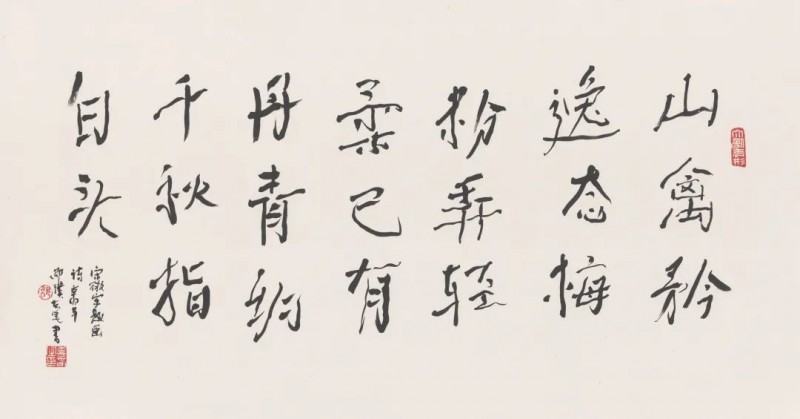 山禽矜
逸态梅
粉弄轻
柔已有
丹青约
千秋指
白头
宋徽宗题画
诗辛卯年
书